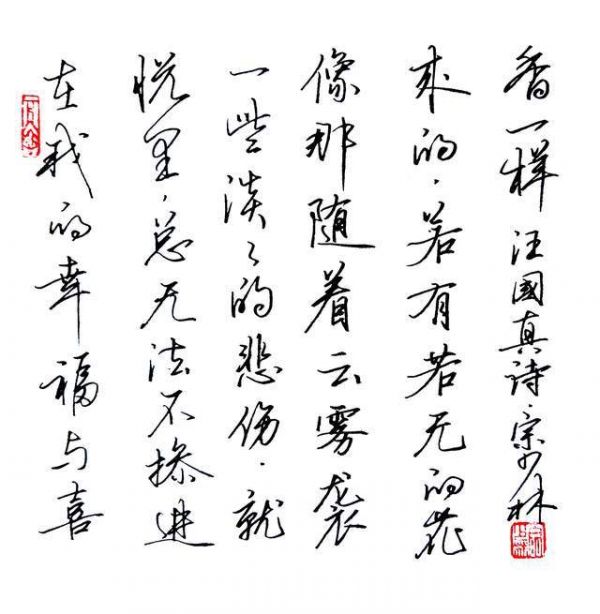 在我的幸福与喜
悦里，总无法不掺进
一些淡々的悲伤，就
像那随着云雾袭
来的，若有若无的花
香一样 汪國真詩·宗少林